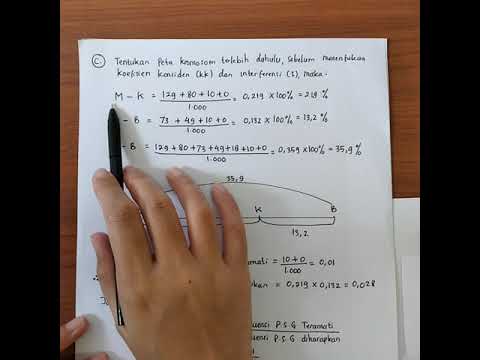 C. Tentukan Peta kromosom terlebih dahulu, sebelum menentukan
koefisien koinsiden (kk) dan interferensi (I), maka.
M - K = 129 + 80 + 10 + 0 / 1.000 = 0,219 x 100% = 21,9 %
- B = 73 + 49 + 10 + 0 / 1.000 = 0,132 x 100% = 13,2 %
- B = 129 + 80 + 73 + 49 + 18 + 10 + 0 / 1.000 = 0,359 x 100% = 35,9 %
35,9
K B
13,2
amati = 10 + 0 / 1.000 = 0,01
kan = 0,219 x 0,132 = 0,028
uensi P.S.G Teramati
uensi P.S.G diharapkan